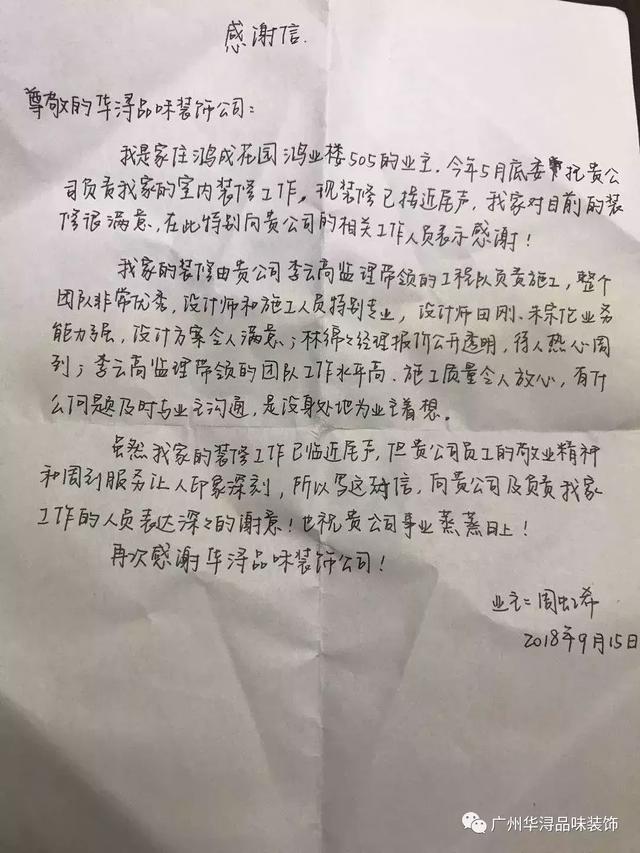 感谢信.
尊敬的华浔品味装饰公司:
我是家住鸿成花园鸿业楼505的业主.今年5月底委托贵公
司负责我家的室内装修工作。现装修已接近尾声,我家对目前的装
修很满意,在此特别向贵公司的相关工作人员表示感谢!
我家的装修由贵公司李云高监理带领的工程队负责施工,整个
团队非常优秀,设计师和施工人员特别专业,设计师田刚、朱宗佗业务
能力强,设计方案令人满意;林绵々经理报价公开透明,待人热心周
到;李云高监理带领的团队工作水平高、施工质量令人放心,有什
么问题及时与业主沟通,是设身处地为业主着想。
虽然我家的装修工作已临近尾声,但贵公司员工的敬业精神
和周到服务让人印象深刻,所以写这封信,向贵公司及负责我家
工作的人员表达深々的谢意!也祝贵公司事业蒸蒸日上!
再次感谢华浔品味装饰公司!
业主:周虹希
2018年9月15日
广州华浔品味装饰